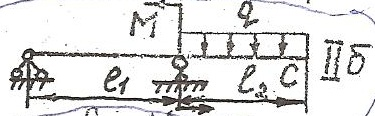 M q
C IIб
ℓ₁ ℓ₂